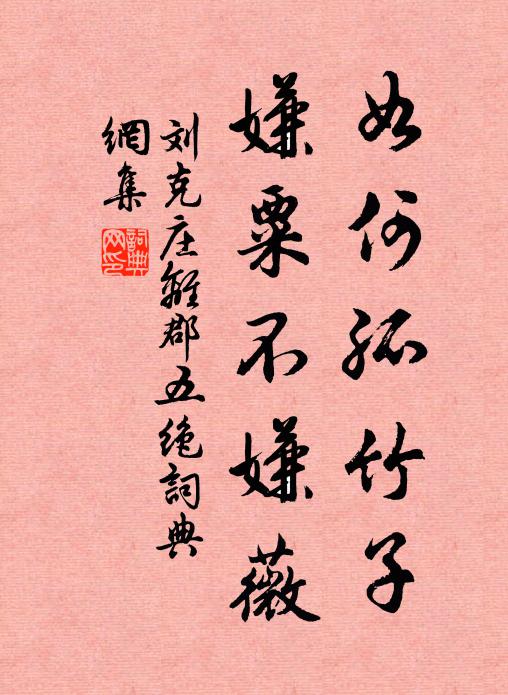 如何孤竹子
嫌粟不嫌薇
刘克庄離郡五绝詞典
網集
詞典网印